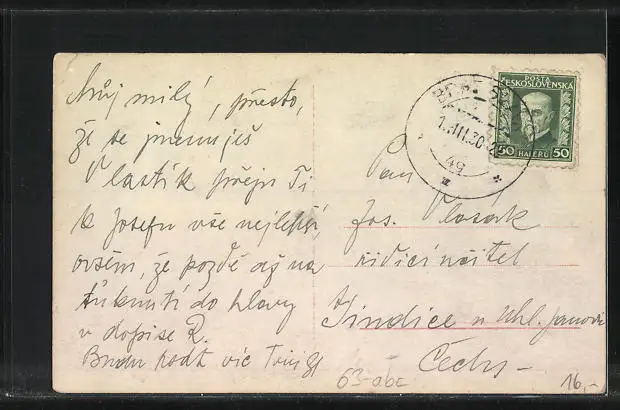 Můj milý, přesto,
že se jmenuješ
Vlastík přeju Ti
k Josefu vše nejlepší,
ovšem, že pozdě až na
ťuknutí do hlavy
v dopise R.
Budu hodt víc
Pan
Jos. Vlasák
řídící učitel
Jindice u Uhl. Janovic
Čechy
POSTA
ČESKOSLOVENSKÁ
50 HALÉŘŮ 50
.III.30
49
63-abc
16,-